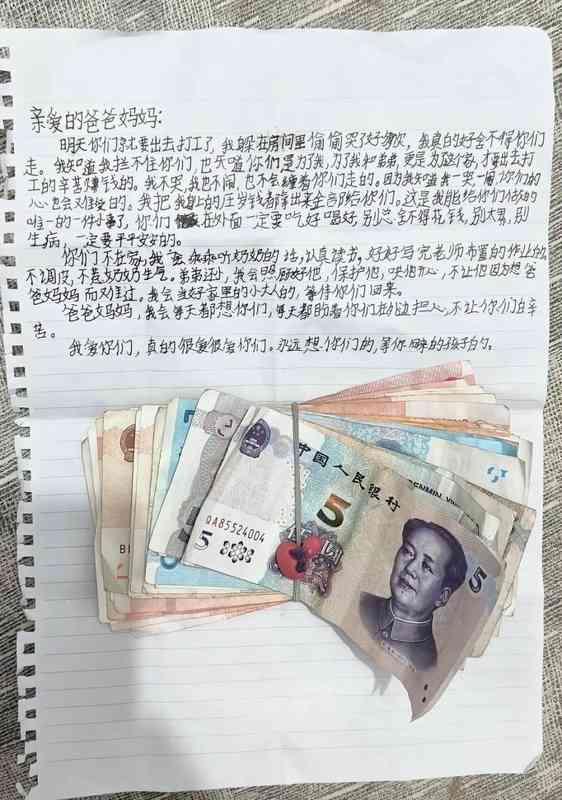 亲爱的爸爸妈妈:
明天你们就要出去打工了,我躲在房间里偷偷哭了好多次,我真的好舍不得你们
走。我知道我拦不住你们,也知道你们是为了我,为了我和弟弟,更是为这个家,才要出去打
工的辛苦赚钱的。我不哭,我也不闹,也不会缠着你们走的。因为我知道我一哭一闹,你们的
心也会难受的。我把我的压岁钱都拿出来全留给你们。这是我能给你们做的
唯一的一件小事了,你们在外面一定要吃好喝好,别总舍不得花钱,别太累,别
生病,一定要平平安安的。
你们不在家,我会乖乖听奶奶的话,认真读书,好好写完老师布置的作业
不调皮,不惹奶奶生气。弟弟还小,我会照顾好他,保护他,哄他开心,不让他因为想爸
爸妈妈而难过。我会当好家里的小大人的,等待你们回来。
爸爸妈妈,我会每天都想你们,每天都盼着你们在外边开心,不让你们白辛
苦。
我爱你们,真的很爱很爱你们。永远想你们的,等你回来的孩子
中国人民银行
5
QA85524004
5
5